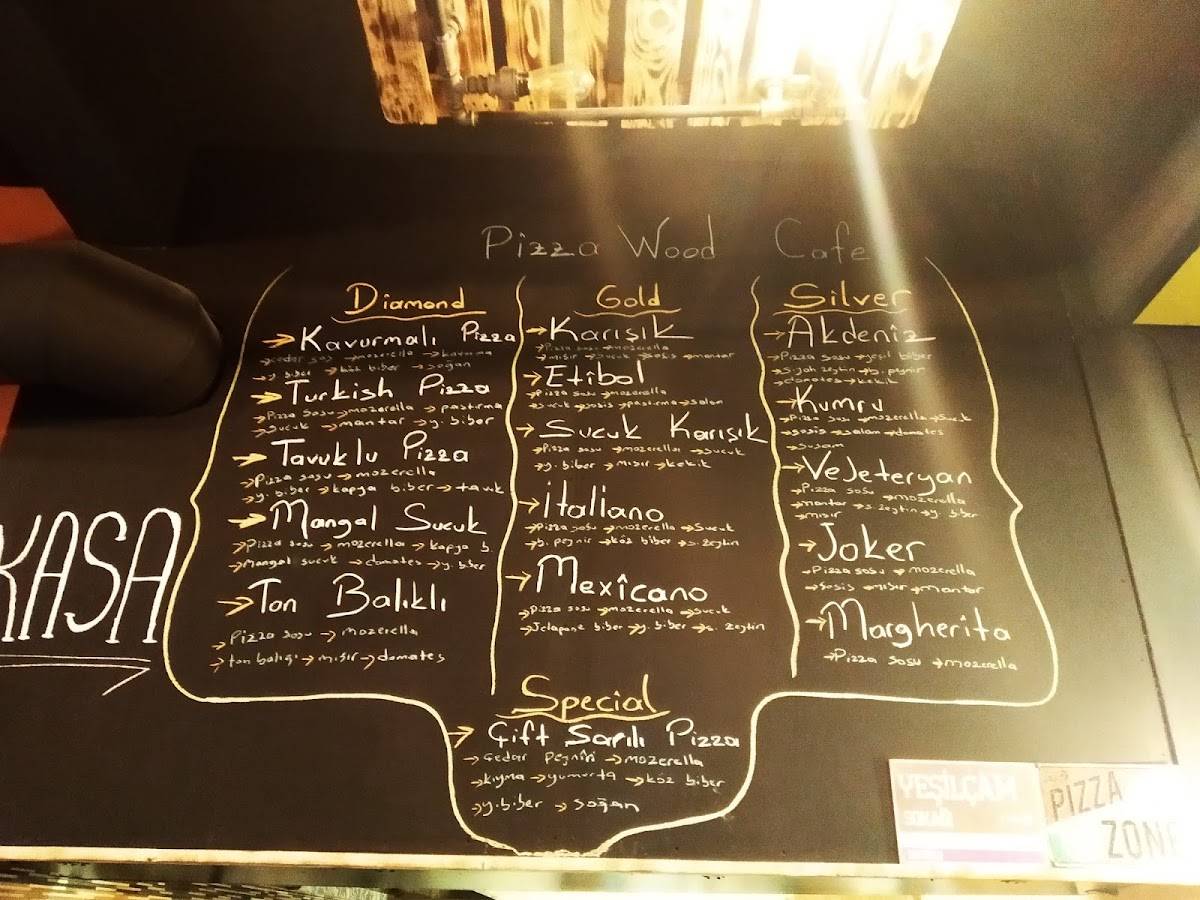 Pizza Wood Cafe
Diamond
→ Kavurmalı Pizza
→ mozerella → kavurma
→ y. biber → köz biber → soğan
→ Turkish Pizza
→ Pizza sosu → mozarella → pastırma
→ Sucuk → mantar → y. biber
→ Tavuklu Pizza
→ Pizza sosu → mozerella
→ y. biber → kapya biber → tavuk
→ Mangal Sucuk
→ Pizza sosu → mozerella → kapya b.
→ Mangal sucuk → domates → y. biber
→ Ton Balıklı
→ Pizza sosu → mozerella
→ ton balıgı → mısır → domates
Gold
→ Karışık
→ Pizza sosu → mozerella
→ mısır → sucuk → sosis → mantar
→ Etibol
→ Pizza sosu → mozarella
→ sucuk → sosis → pastırma → salam
→ Sucuk Karışık
→ Pizza sosu → mozarella → sucuk
→ y. biber → mısır → kekik
→ İtaliano
→ Pizza sosu → mozarella → Sucuk
→ b. peynir → köz biber → s. zeytin
→ Mexicano
→ Pizza sosu → mozarella → sucuk
→ Jelapone biber → y. biber → s. zeytin
Silver
→ Akdeniz
→ Pizza sosu → yeşil biber
→ b. peynir
→ domates → kekik
→ Kumru
→ Pizza sosu → mozerella → sucuk
→ sosis → salam → domates
→ susam
→ Vejeteryan
→ Pizza sosu → mozarella
→ mantar → s. zeytin → y. biber
→ mısır
→ Joker
→ Pizza sosu → mozerella
→ Sosis → mısır → mantar
→ Margherita
→ Pizza sosu → mozarella
Special
→ Çift Sarılı Pizza
→ Çedar Peyniri → mozarella
→ kıyma → yumurta → köz biber
→ y. biber → soğan
KASA
YEŞİLÇAM
SOKAĞI
PİZZA
ZONE